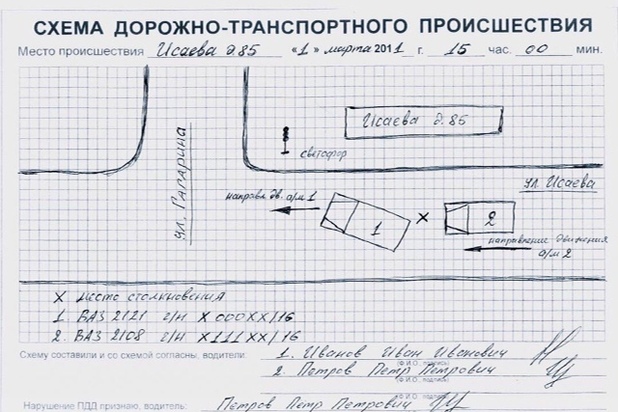 СХЕМА ДОРОЖНО-ТРАНСПОРТНОГО ПРОИСШЕСТВИЯ
Место происшествия Исаева д.85 «1» марта 2011 г. 15 час. 00 мин.
Исаева д.85
светофор
ул. Гагарина
ул. Исаева
направл. дв. а/м 1
1
X
2
направление движения
а/м 2
X место столкновения
1. ВАЗ 2121 г/н X000XX/16
2. ВАЗ 2108 г/н X111XX/16
Схему составили и со схемой согласны, водители: 1. Иванов Иван Иванович
(Ф.И.О., подпись)
2. Петров Петр Петрович
(Ф.И.О., подпись)
Нарушение ПДД признаю, водитель: Петров Петр Петрович